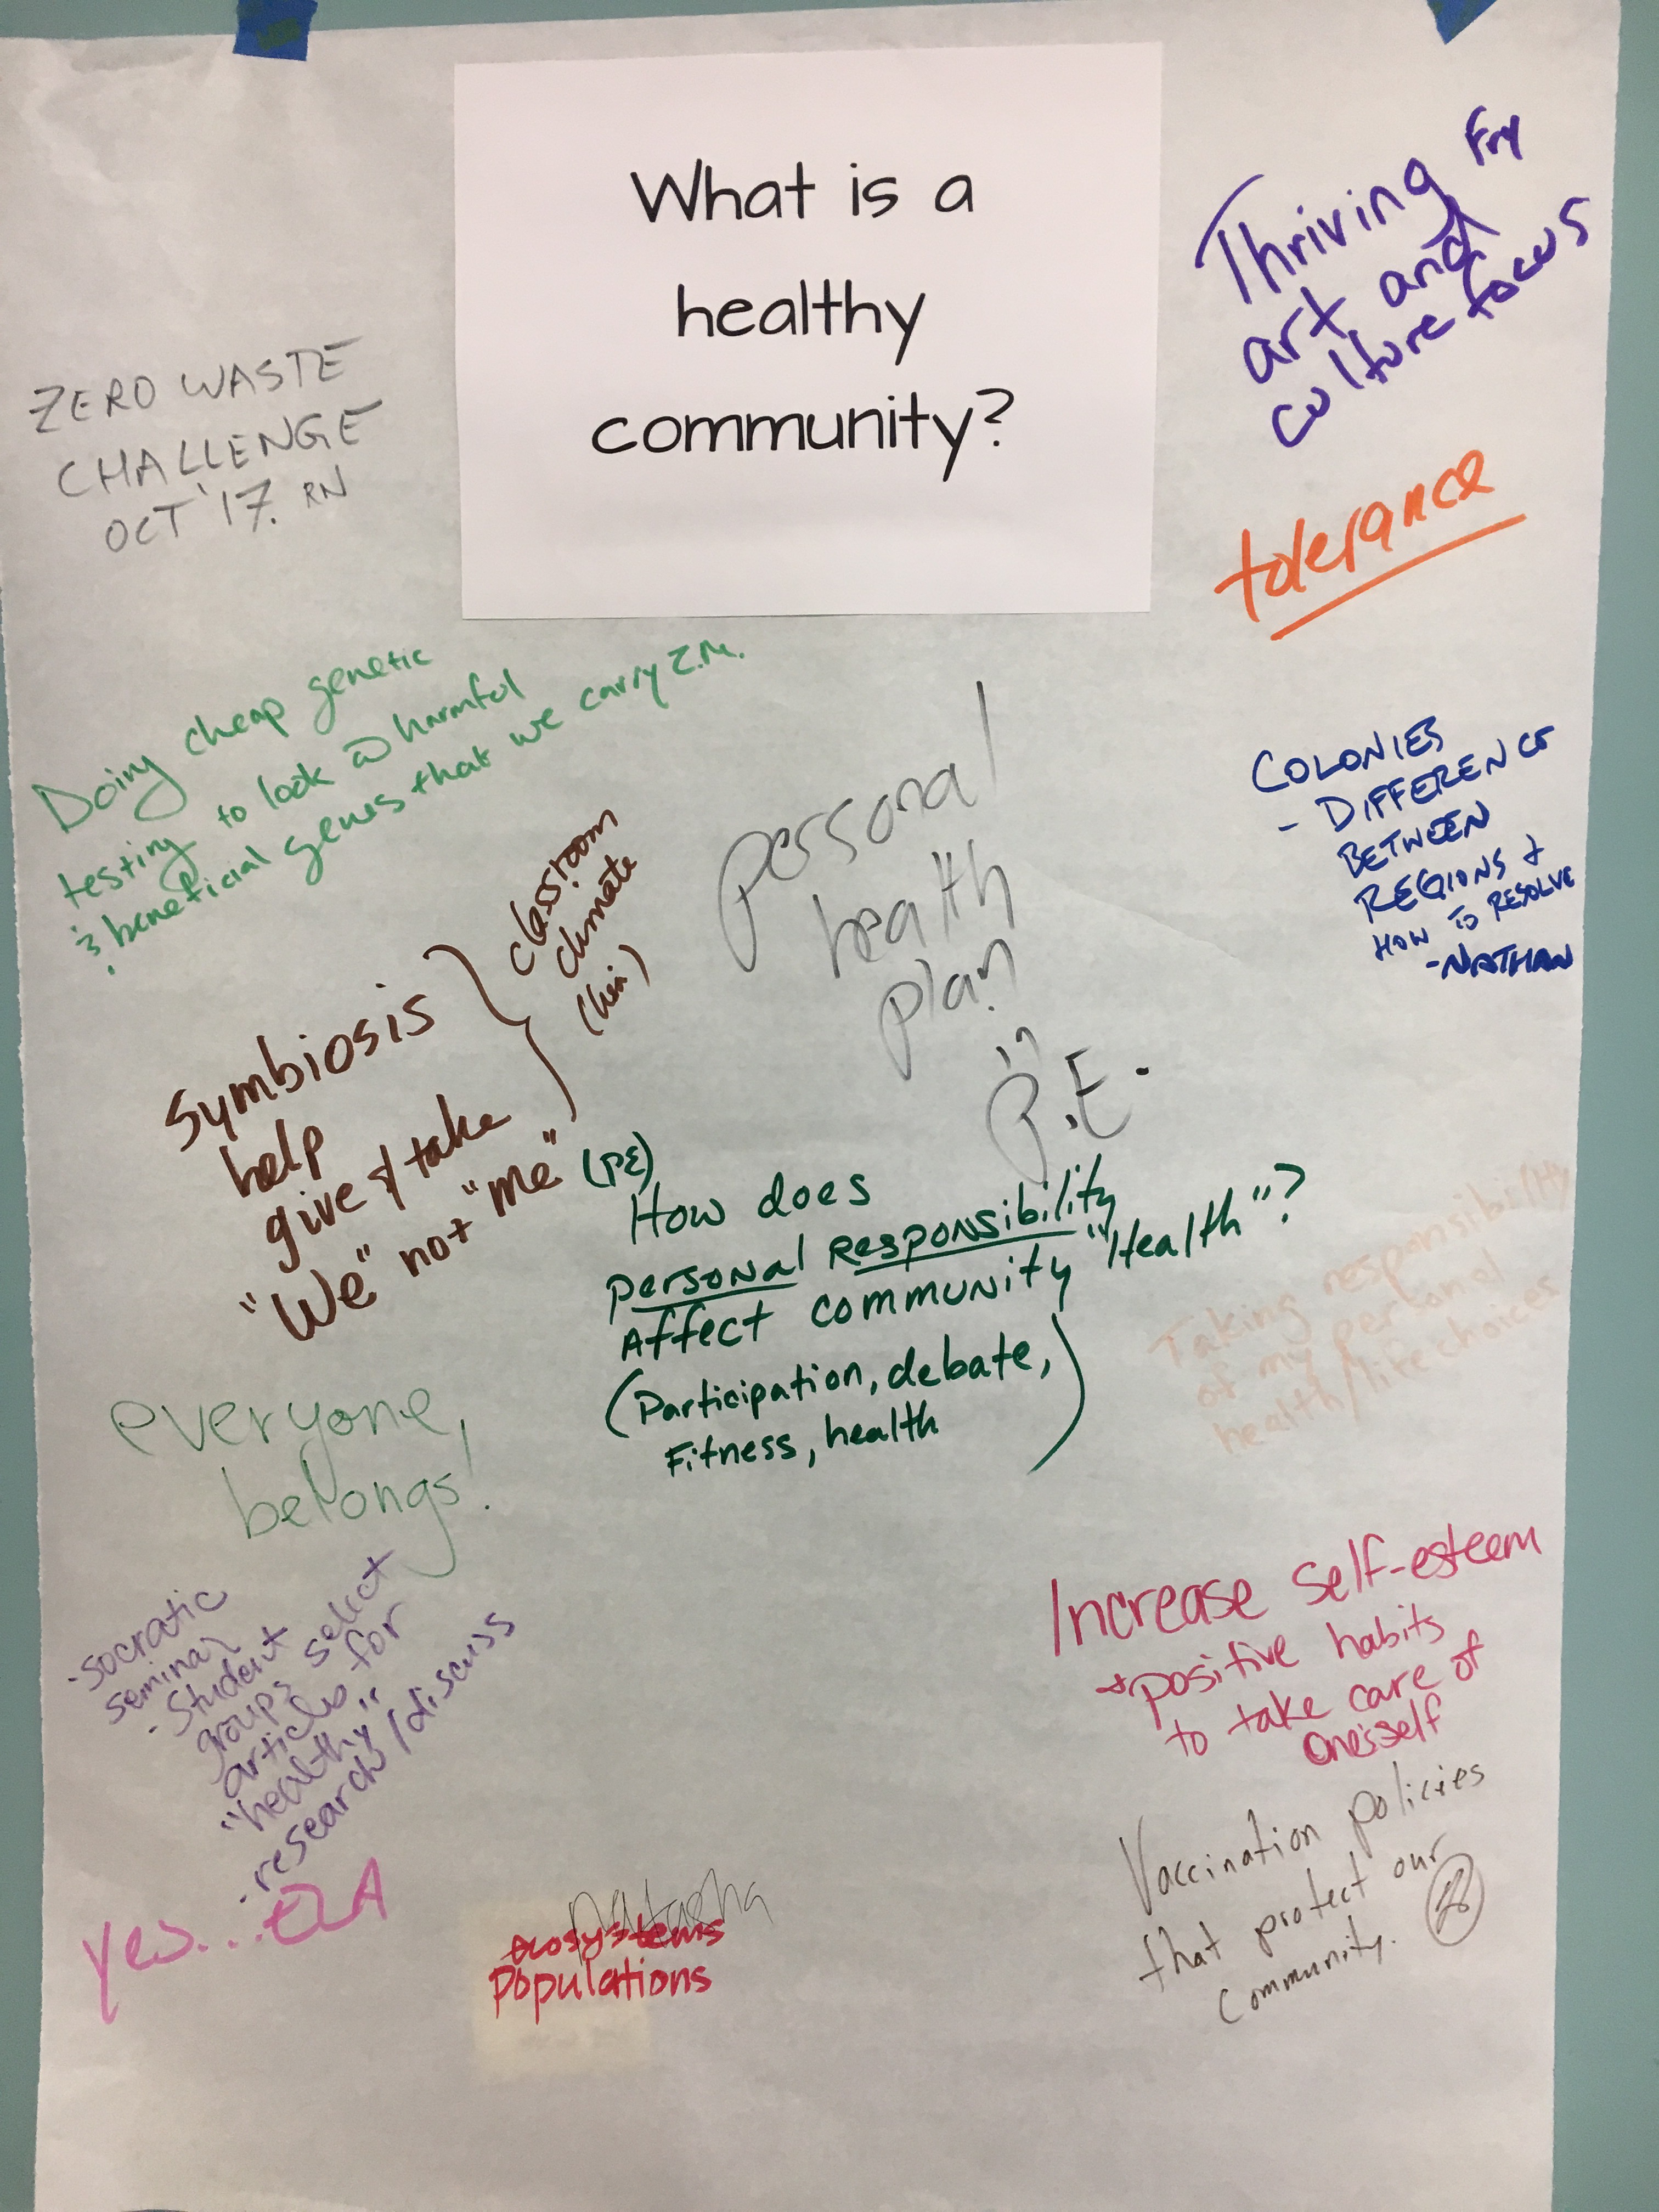 What is a
healthy
community?
Fry
Thriving
art and
culture focus
ZERO WASTE
CHALLENGE
OCT '17. RN
tolerance
Doing cheap genetic
testing to look @ harmful
& beneficial genes that we carry Z.M.
COLONIES
- DIFFERENCE
BETWEEN
REGIONS &
HOW TO RESOLVE
-NATHAN
personal
health
plan
in
P.E.
classroom
climate
Symbiosis
help
give & take
"We" not "me"
(PE)
How does
personal Responsibility
Affect community "Health"?
(Participation, debate,
Fitness, health)
Taking responsibility
of my personal
health/life choices
everyone,
belongs!
- socratic
seminar
- Student
groups select
articles for
"healthy"
- research/discuss
Yes...ELA
Increase self-esteem
+positive habits
to take care of
one'sself
Vaccination policies
that protect our
community.
Natasha
ecosystems
populations